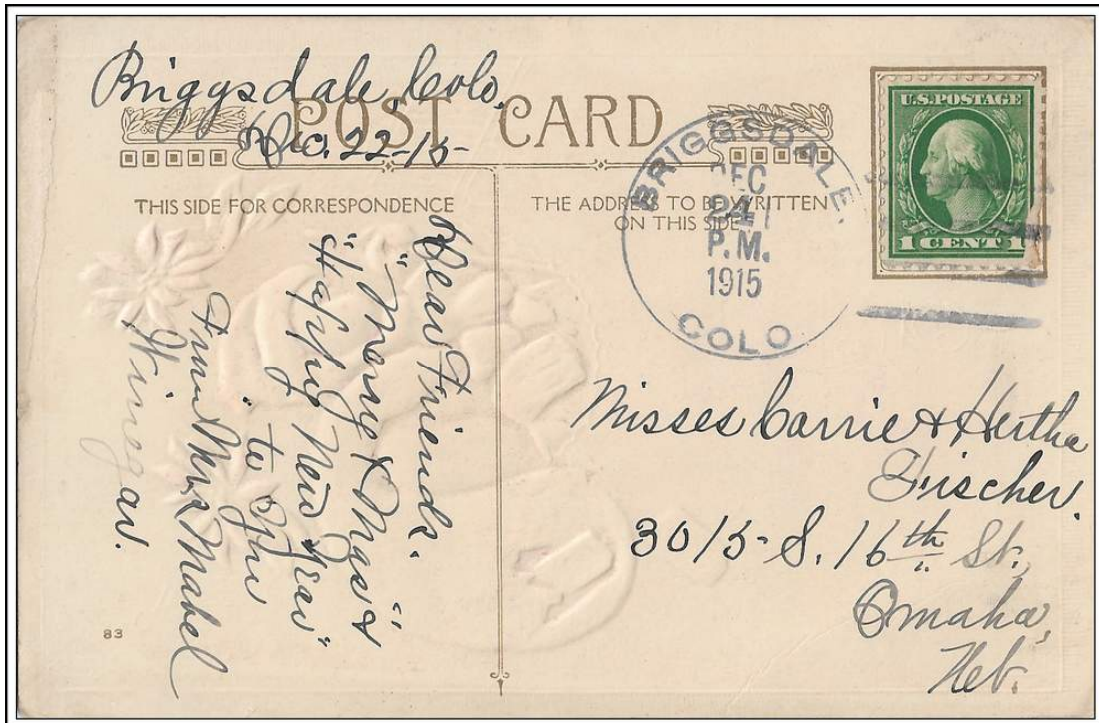 Briggsdale, Colo,
Dec. 22-15-
POST CARD
THIS SIDE FOR CORRESPONDENCE
THE ADDRESS TO BE WRITTEN
ON THIS SIDE
BRIGGSDALE,
DEC
24
P.M.
1915
COLO.
U.S. POSTAGE
1 CENT 1
Dear Friends.
"Merry X Mas" &
"Happy New Year"
to You
From Mr &
Mabel
Winegar.
Misses Carrie & Hertha
Fischer.
3015- S. 16th St.
Omaha,
Neb.
83